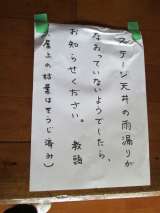 ステージ天井の雨漏りが
なおっていないようでしたら、
お知らせください。 教頭
(屋上の枯葉はそうじ済み)